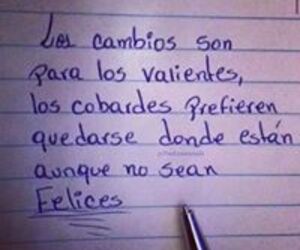 Los cambios son
para los valientes,
los cobardes prefieren
quedarse donde están
aunque no sean
Felices